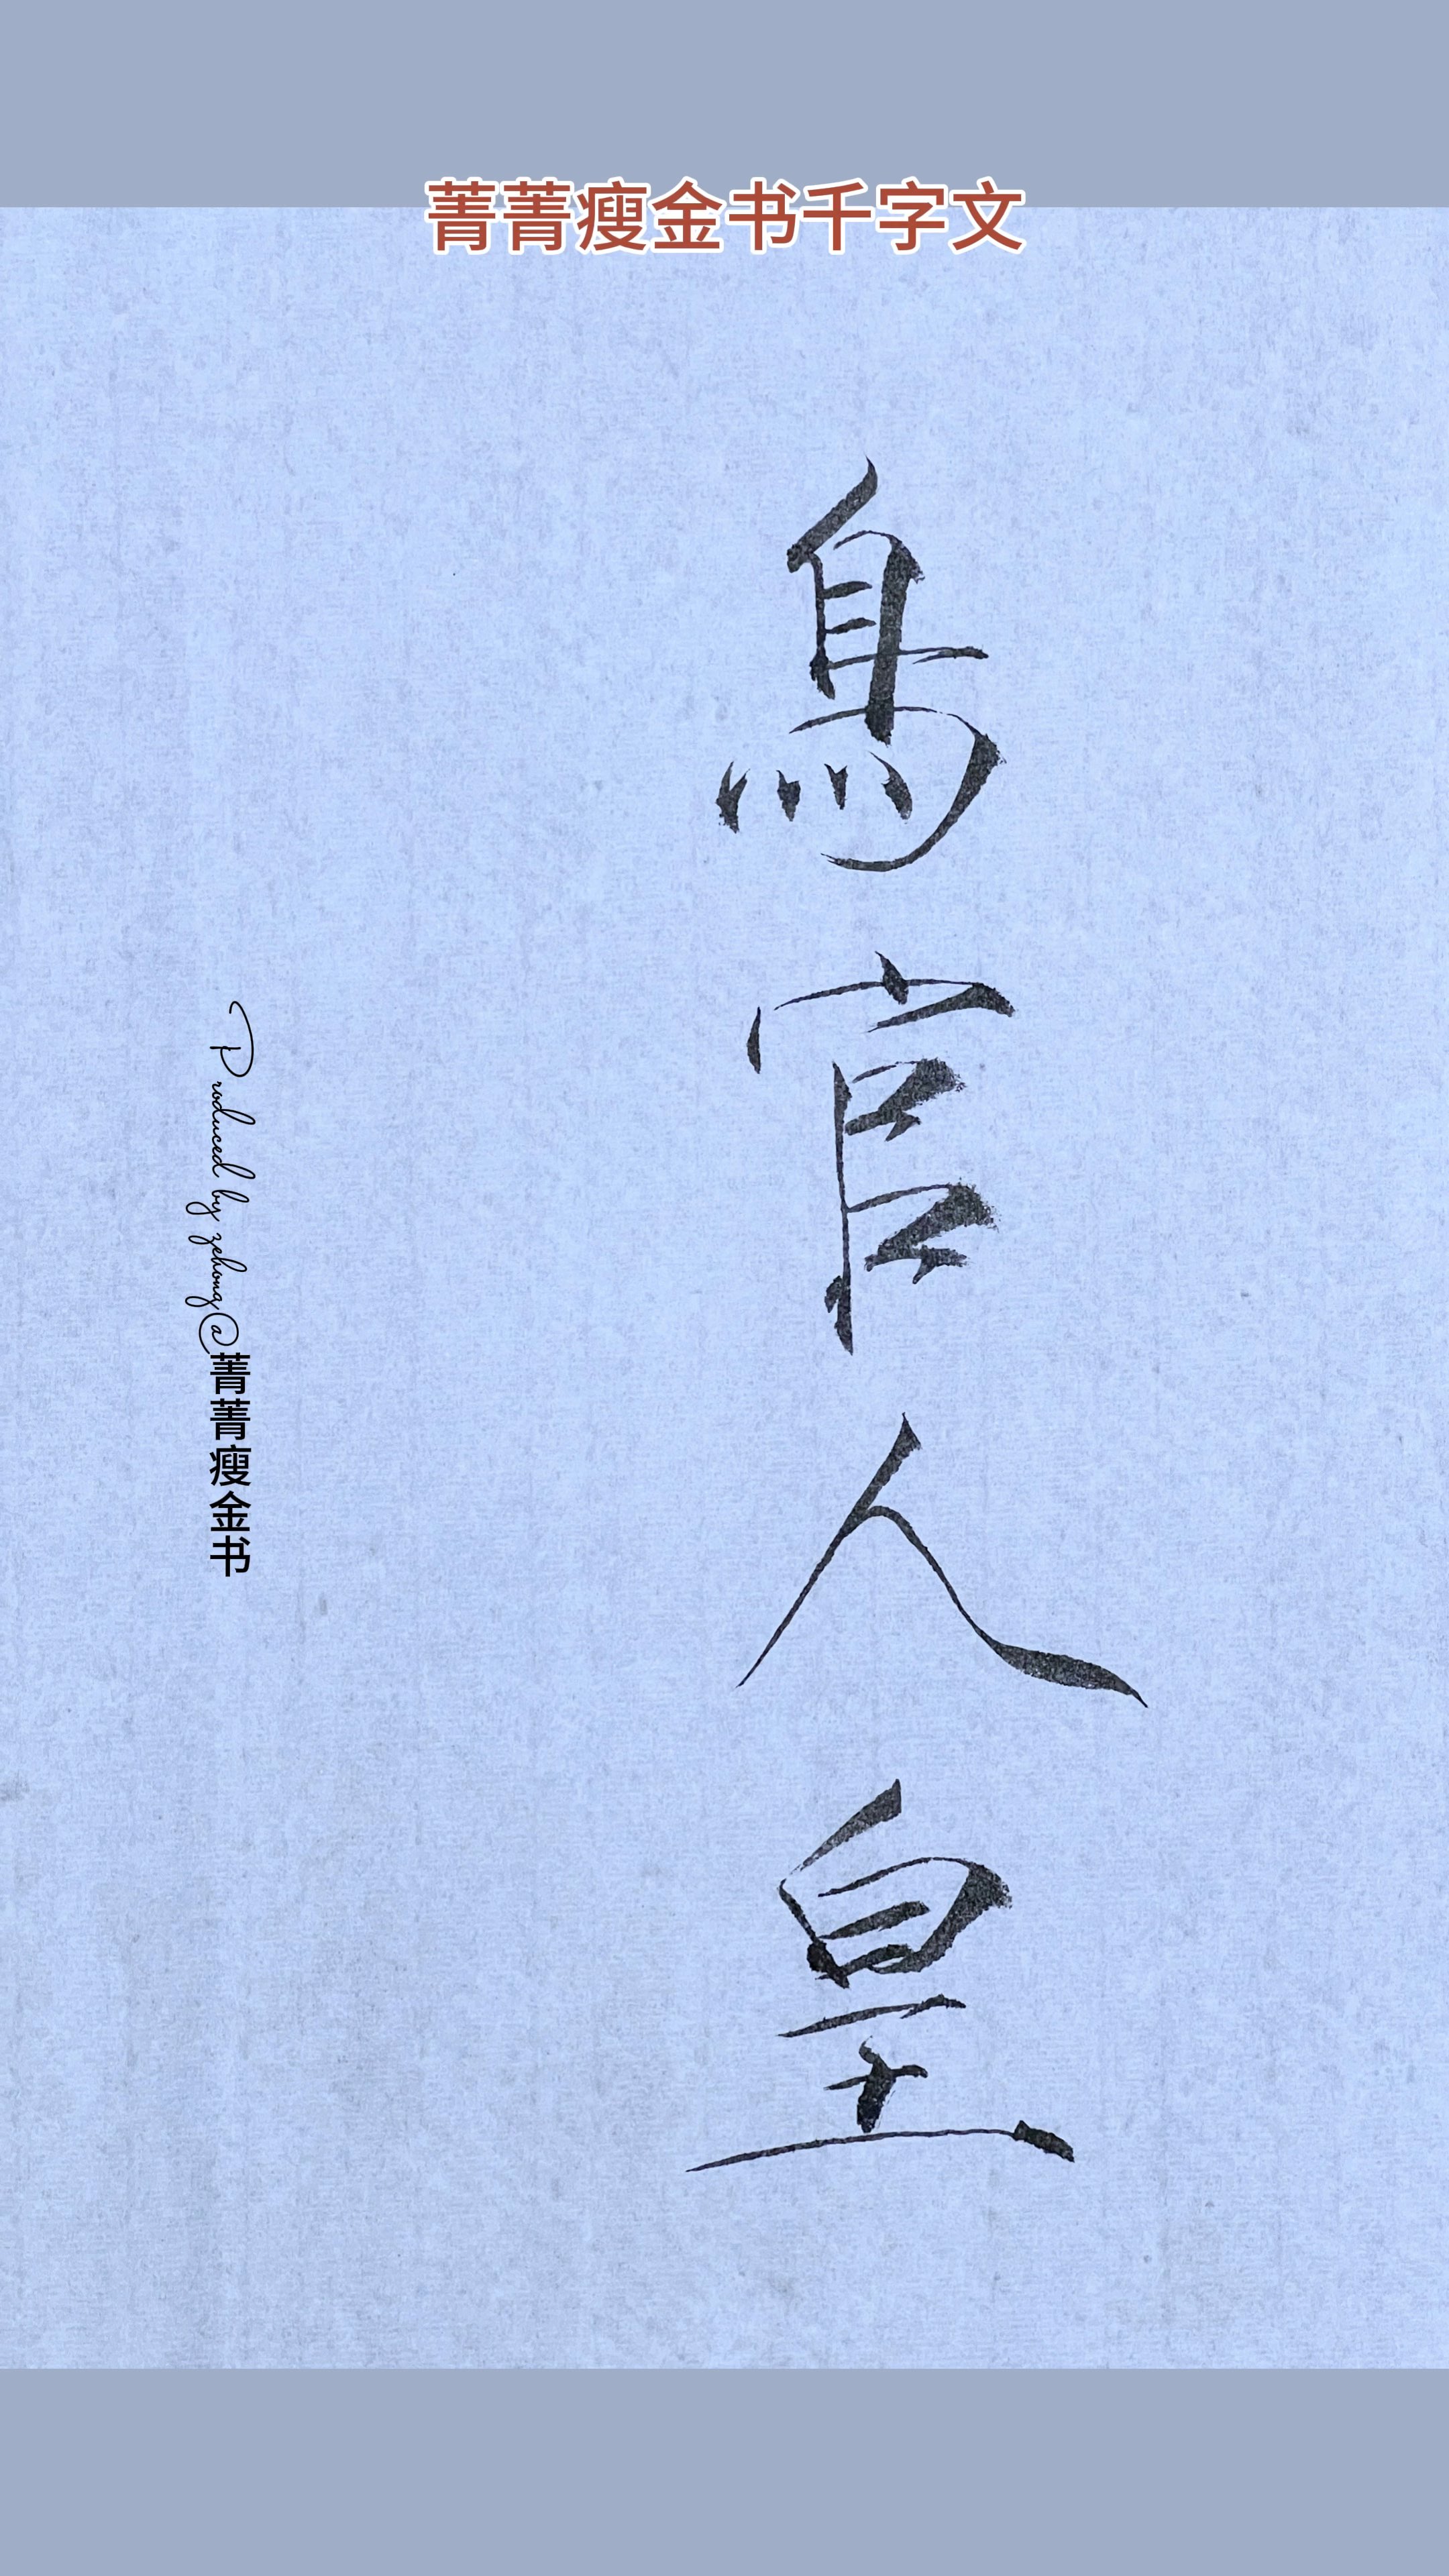 菁菁瘦金书千字文
鳥官人皇
Produced by zehong@菁菁瘦金书